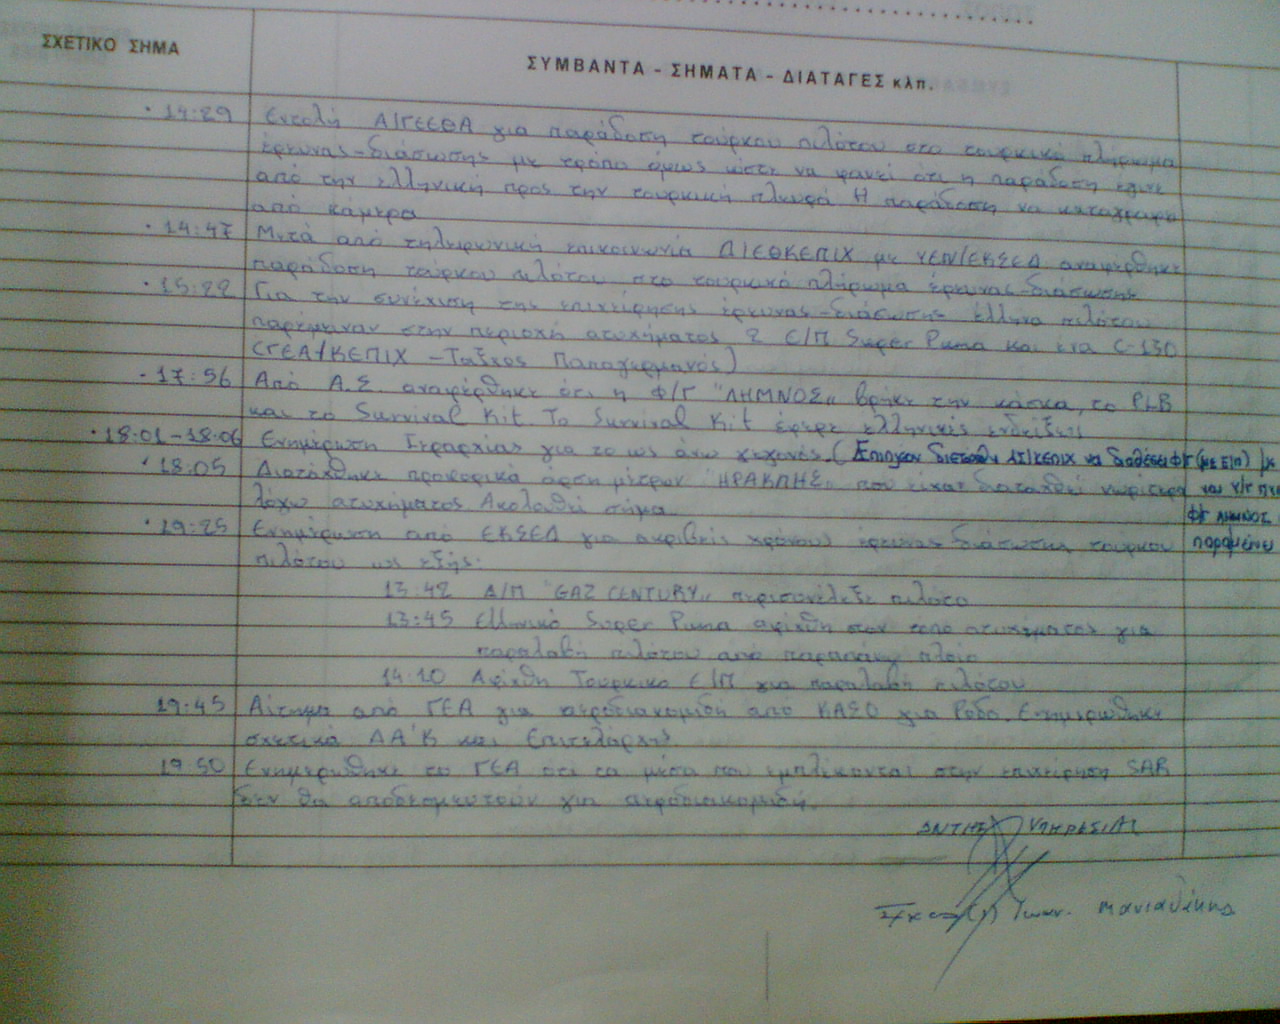 ΣΧΕΤΙΚΟ ΣΗΜΑ
ΣΥΜΒΑΝΤΑ - ΣΗΜΑΤΑ - ΔΙΑΤΑΓΕΣ κλπ.
· 14:29 Εντολή Α/ΓΕΕΘΑ για παράδοση τούρκου πιλότου στο τουρκικό πλήρωμα
έρευνας-διάσωσης με τρόπο όμως ώστε να φανεί ότι η παράδοση έγινε
από την ελληνική προς την τουρκική πλευρά Η παράδοση να καταγραφεί
από κάμερα
· 14:47 Μετά από τηλεφωνική επικοινωνία Δ/ΕΘΚΕΠΙΧ με ΥΕΝ/ΕΚΣΕΔ αναφέρθηκε
παράδοση τούρκου πιλότου στο τουρκικό πλήρωμα έρευνας-διάσωσης
· 15:22 Για την συνέχιση της επιχείρησης έρευνας-διάσωσης έλληνα πιλότου
παρέμειναν στην περιοχή ατυχήματος 2 Ε/Π Super Puma και ένα C-130
(ΓΕΑ/ΚΕΠΙΧ - Ταξχος Παπαγερμανός)
· 17:56 Από Α.Σ. αναφέρθηκε ότι η Φ/Γ "ΛΗΜΝΟΣ" βρήκε την κάσκα, το PLB
και το Survival Kit. Το Survival Kit έφερε ελληνικές ενδείξεις
· 18:01-18:06 Ενημέρωση Ιεραρχίας για το ως άνω γεγονός. (Επιπλέον διετάχθη ΑΣ/ΚΕΠΙΧ να διαθέσει Φ/Γ (με Ε/Π)
· 18:05 Διατάχθηκε προφορικά άρση μέτρων "ΗΡΑΚΛΗΣ" που είχαν διαταχθεί νωρίτερα
λόγω ατυχήματος Ακολουθεί σήμα
και Κ/Γ
Φ/Γ ΛΗΜΝΟΣ
παραμένει
· 19:25 Ενημέρωση από ΕΚΣΕΔ για ακριβείς χρόνους έρευνας διάσωσης τούρκου
πιλότου ως εξής:
13:42 Δ/Π "GAZ CENTURY" περισυνέλεξε πιλότο
13:45 Ελληνικό Super Puma αφίχθη στον τόπο ατυχήματος για
παραλαβή πιλότου από παραπάνω πλοίο
14:10 Αφίχθη Τουρκικο Ε/Π για παραλαβή πιλότου
19:45 Αίτημα από ΓΕΑ για αεροδιακομιδή από ΚΑΣΟ για Ρόδο. Ενημερώθηκε
σχετικά ΔΑ'Κ και Επιτελάρχης.
19:50 Ενημερώθηκε το ΓΕΑ ότι τα μέσα που εμπλέκονται στην επιχείρηση SAR
δεν θα αποδεσμευτούν για αεροδιακομιδή.
ΔΝΤΗΣ ΥΠΗΡΕΣΙΑΣ
Ιωαν.